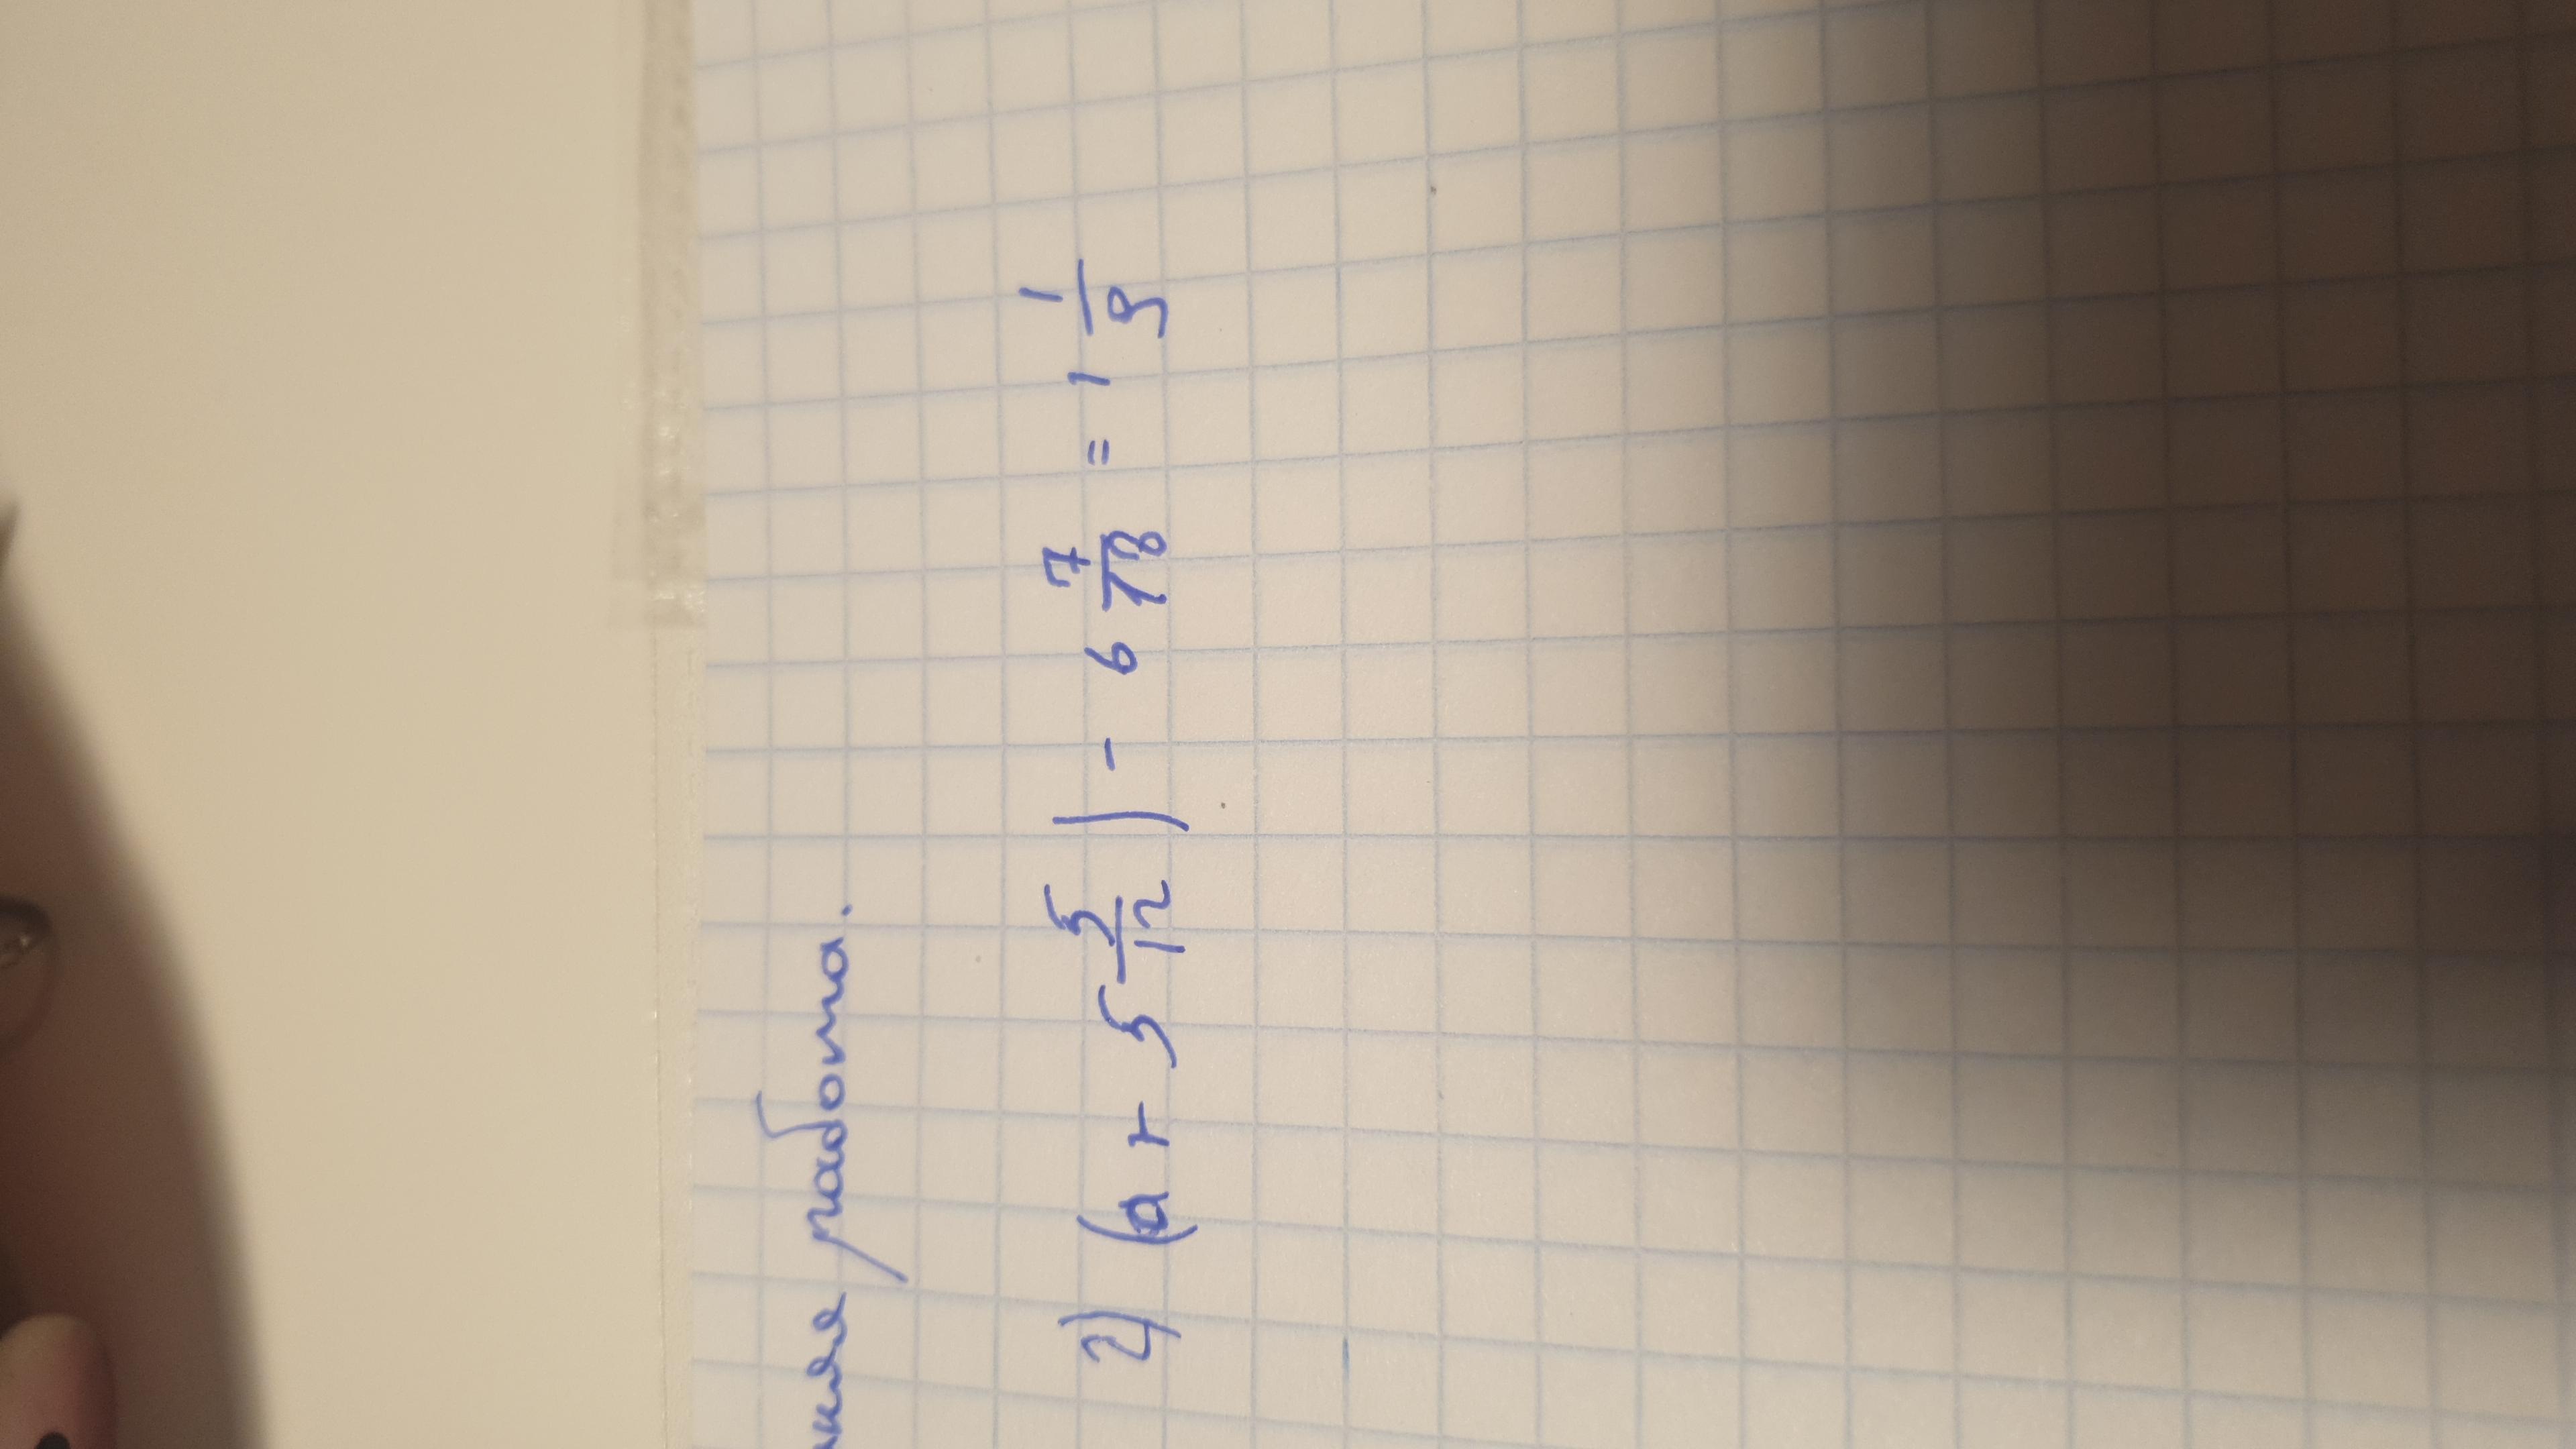 работа.
2) (a + 5 5/12) - 6 7/18 = 1 1/9